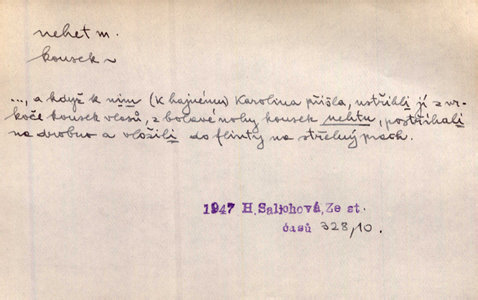 nehet m.
kousek ~
..., a když k nim (k hajnému) Karolina přišla, ustřihli jí z vr-
koče kousek vlasů, z bolavé nohy kousek nehtu, postříhali
na drobno a vložili do flinty na střelný prach.
1947 H. Salichová, Ze st.
časů 328,10.